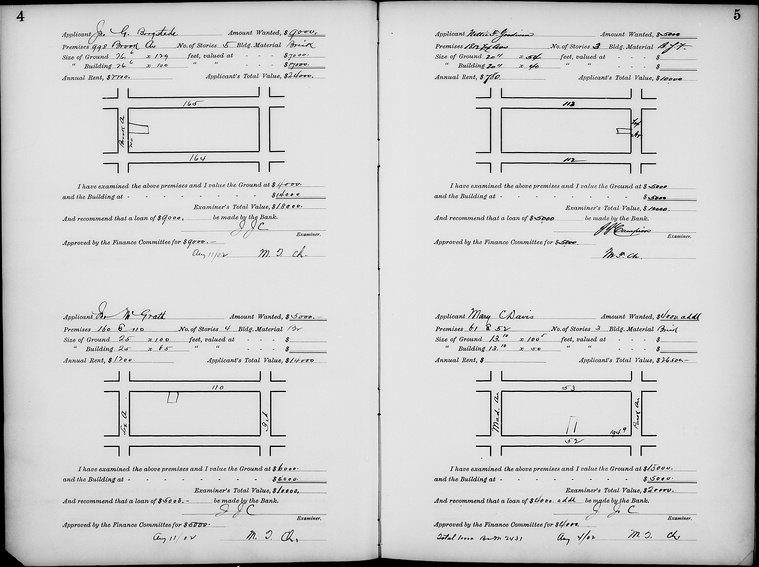 4
Applicant Jno G. Borgstede Amount Wanted, $9000.
Premises 998 Brook Av No. of Stories 5 Bldg. Material Brick
Size of Ground 26⁶ x 129 feet, valued at - - - $7000.
" Building 26⁶ x 100 " " - - - $17000.
Annual Rent, $2700. Applicant's Total Value, $24000.
165
Brook A
164
I have examined the above premises and I value the Ground at $4000.
and the Building at - - - - - - - $14000
Examiner's Total Value, $18000.
And recommend that a loan of $9000. be made by the Bank.
J J C
Examiner.
Approved by the Finance Committee for $9000.—
Aug 11/02 M. T. Ch.
Applicant Jno McGrath Amount Wanted, $5000.—
Premises 160 E 110 No. of Stories 4 Bldg. Material Br
Size of Ground 25 x 100 feet, valued at - - - $
" Building 25 x 65 " " - - - $
Annual Rent, $1200 Applicant's Total Value, $14000
110
Lex A
3rd
I have examined the above premises and I value the Ground at $6000.
and the Building at - - - - - - - $6000
Examiner's Total Value, $10000.
And recommend that a loan of $5000.— be made by the Bank.
J J C
Examiner.
Approved by the Finance Committee for $5000.
Aug 11/02 M. T. Ch.
5
Applicant Nellie F. Amount Wanted, $5000
Premises Lex Av No. of Stories 3 Bldg. Material
Size of Ground 20" x 54 feet, valued at - - - $
" Building 20" x 40 " " - - - $
Annual Rent, $780 Applicant's Total Value, $10000
113
Lex Av
112
I have examined the above premises and I value the Ground at $5000
and the Building at - - - - - - - $5000
Examiner's Total Value, $10000.
And recommend that a loan of $5000 be made by the Bank.
Examiner.
Approved by the Finance Committee for $5000
M. T. Ch.
Applicant Mary C Davis Amount Wanted, $4000 addl
Premises 61 E 52 No. of Stories 3 Bldg. Material Brick
Size of Ground 13.10 x 100⁵ feet, valued at - - - $
" Building 13.10 x 50 " " - - - $
Annual Rent, $ Applicant's Total Value, $26500.—
53
Mad. Av
Park Av
52
I have examined the above premises and I value the Ground at $15000.
and the Building at - - - - - - - $5000.
Examiner's Total Value, $20000.
And recommend that a loan of $4000 addl be made by the Bank.
J J C
Examiner.
Approved by the Finance Committee for $4000
Total 10000 B&M 2431 Aug 4/02 M. T. Ch.